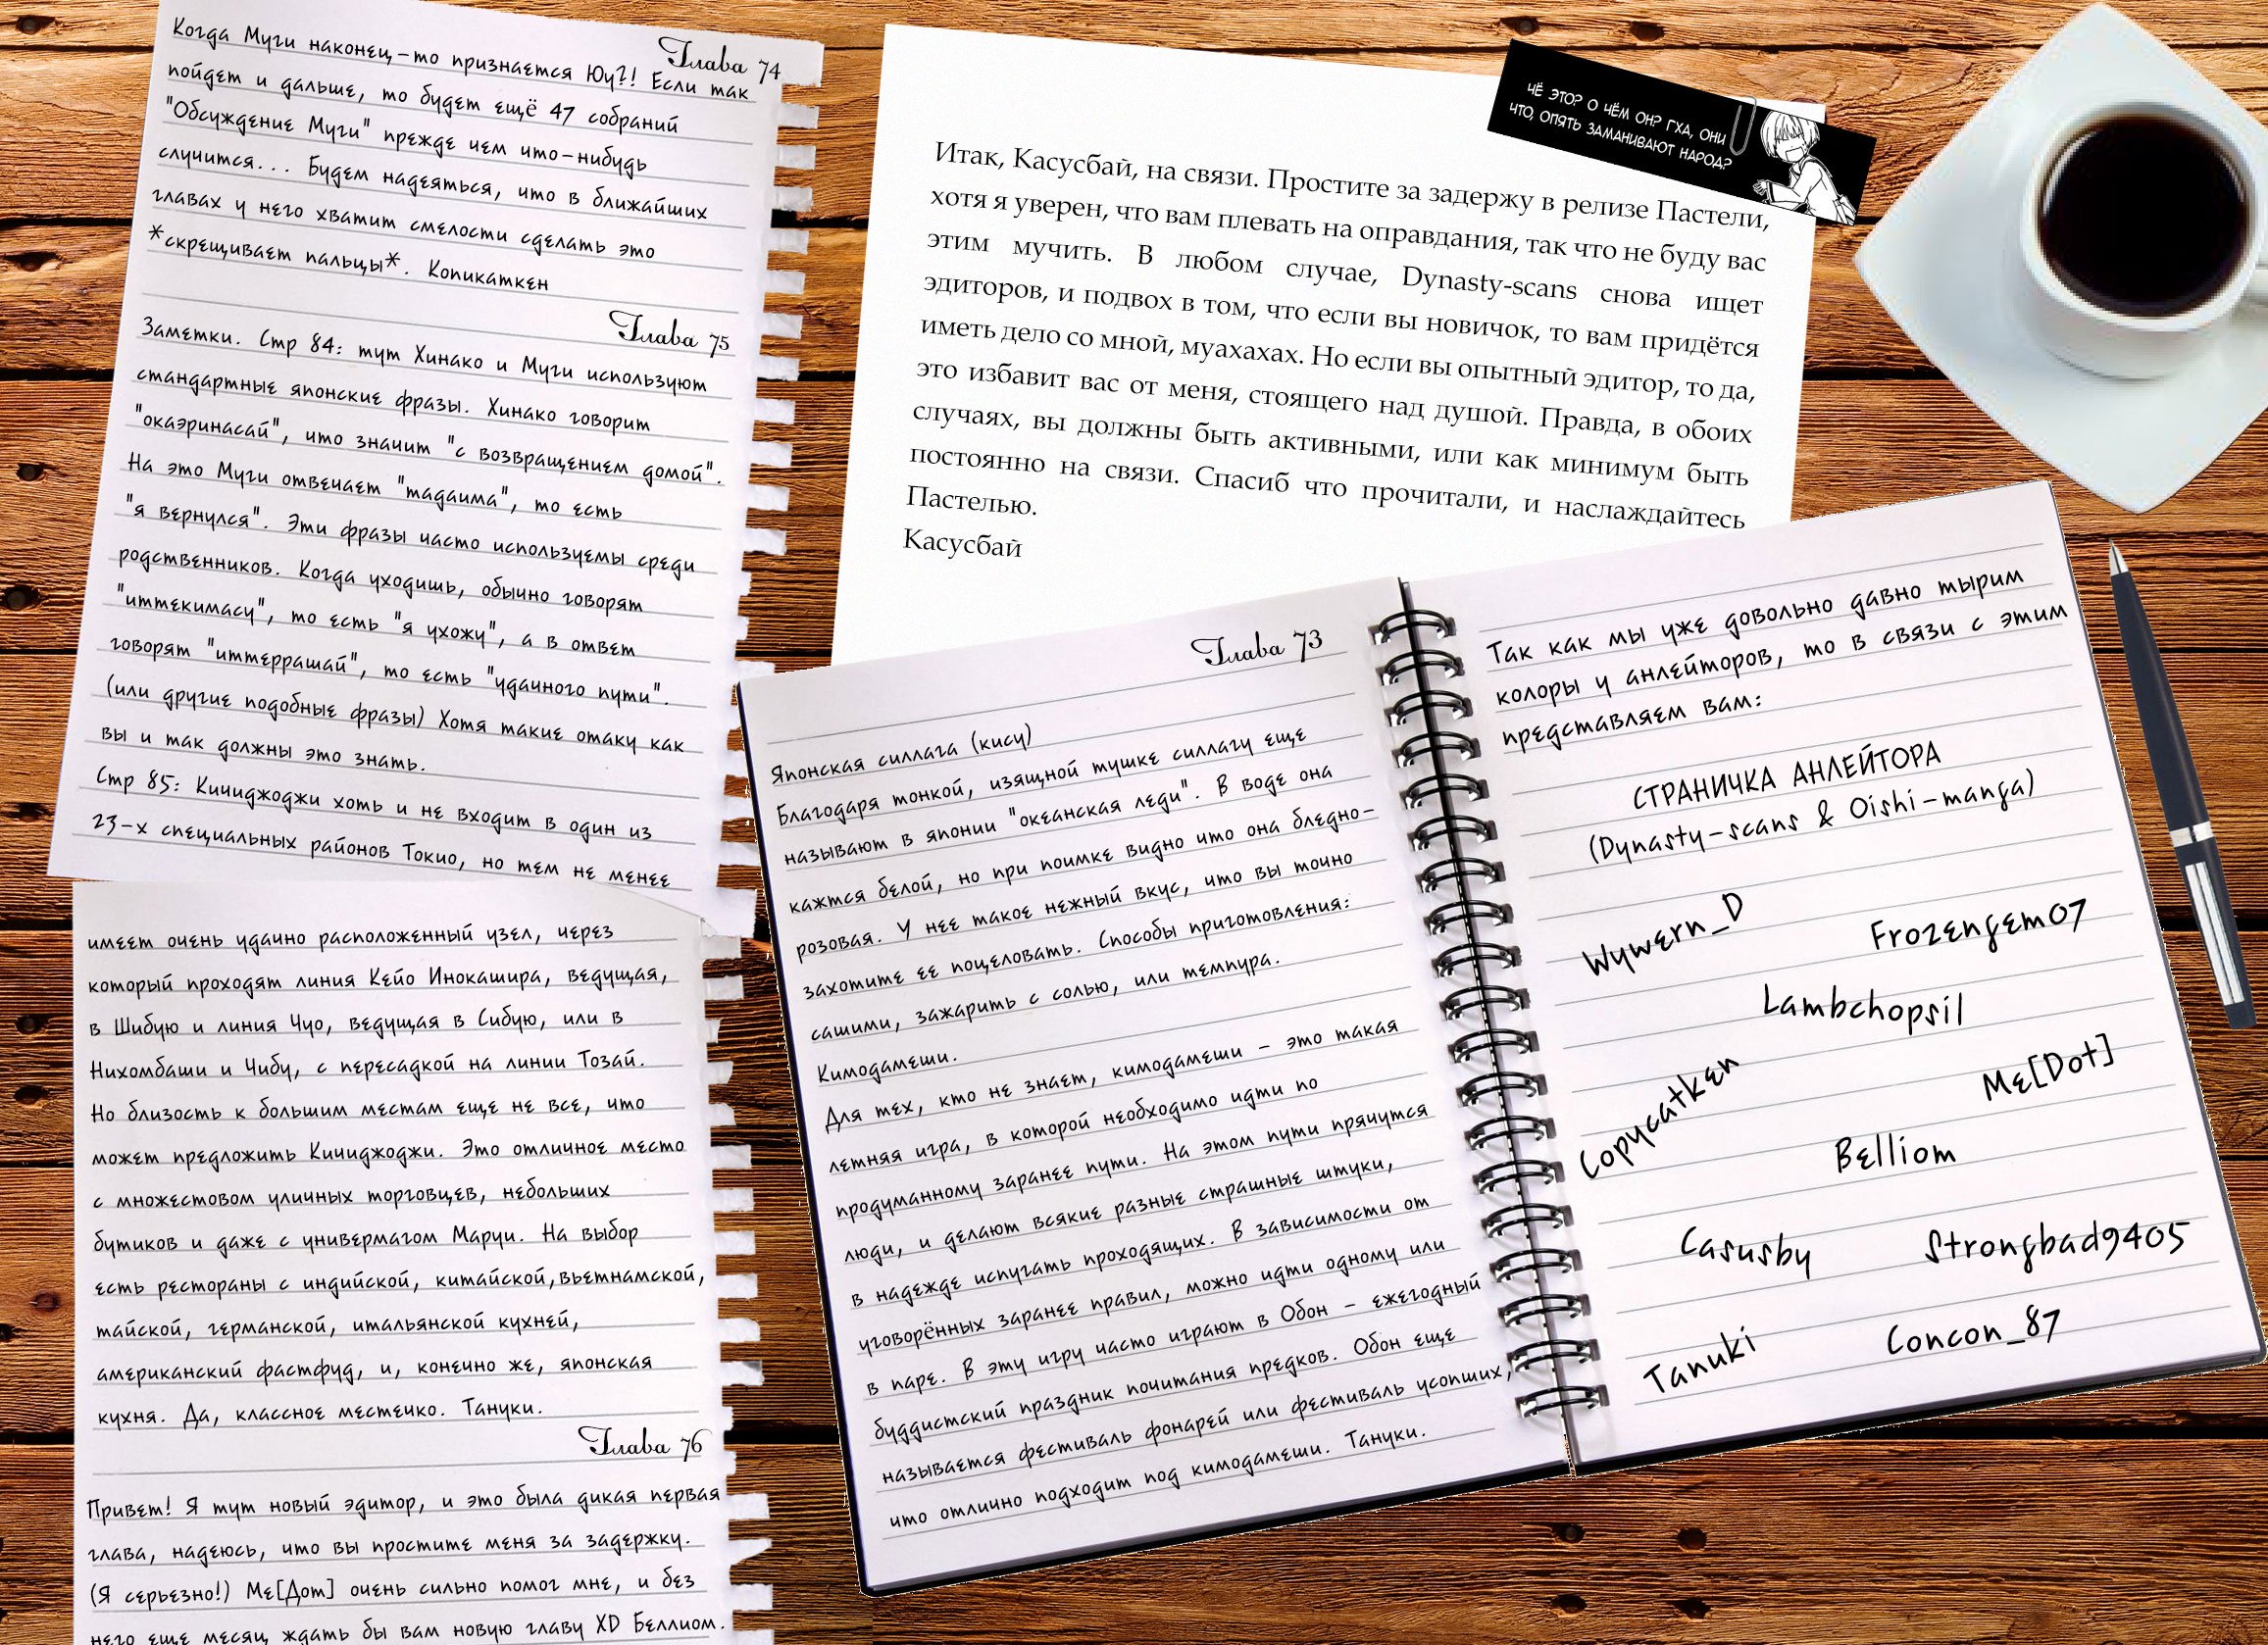 Глава 74
Когда Муги наконец-то признается Юу?! Если так
пойдет и дальше, то будет ещё 47 собраний
"Обсуждение Муги" прежде чем что-нибудь
случится... Будем надеяться, что в ближайших
главах у него хватит смелости сделать это
*скрещивает пальцы*. Копикаткен
Глава 75
Заметки. Стр 84: тут Хинако и Муги используют
стандартные японские фразы. Хинако говорит
"окаэринасай", что значит "с возвращением домой".
На это Муги отвечает "тадаима", то есть
"я вернулся". Эти фразы часто используемы среди
родственников. Когда уходишь, обычно говорят
"иттекимасу", то есть "я ухожу", а в ответ
говорят "иттеррашай", то есть "удачного пути".
(или другие подобные фразы) Хотя такие отаку как
вы и так должны это знать.
Стр 85: Кичиджоджи хоть и не входит в один из
23-х специальных районов Токио, но тем не менее
имеет очень удачно расположенный узел, через
который проходят линия Кейо Инокашира, ведущая,
в Шибую и линия Чуо, ведущая в Сибую, или в
Нихомбаши и Чибу, с пересадкой на линии Тозай.
Но близость к большим местам еще не все, что
может предложить Кичиджоджи. Это отличное место
с множестовом уличных торговцев, небольших
бутиков и даже с универмагом Маруи. На выбор
есть рестораны с индийской, китайской,вьетнамской,
тайской, германской, итальянской кухней,
американский фастфуд, и, конечно же, японская
кухня. Да, классное местечко. Тануки.
Глава 76
Привет! Я тут новый эдитор, и это была дикая первая
глава, надеюсь, что вы простите меня за задержку.
(Я серьезно!) Ме[Дот] очень сильно помог мне, и без
него еще месяц ждать бы вам новую главу XD Беллиом.
ЧЁ ЭТО? О ЧЁМ ОН? ГХА, ОНИ
ЧТО, ОПЯТЬ ЗАМАНИВАЮТ НАРОД?
Итак, Касусбай, на связи. Простите за задержку в релизе Пастели,
хотя я уверен, что вам плевать на оправдания, так что не буду вас
этим мучить. В любом случае, Dynasty-scans снова ищет
эдиторов, и подвох в том, что если вы новичок, то вам придётся
иметь дело со мной, муахахах. Но если вы опытный эдитор, то да,
это избавит вас от меня, стоящего над душой. Правда, в обоих
случаях, вы должны быть активными, или как минимум быть
постоянно на связи. Спасиб что прочитали, и наслаждайтесь
Пастелью.
Касусбай
Глава 73
Японская силлага (кису)
Благодаря тонкой, изящной тушке силлагу еще
называют в японии "океанская леди". В воде она
кажтся белой, но при поимке видно что она бледно-
розовая. У нее такое нежный вкус, что вы точно
захотите ее поцеловать. Способы приготовления:
сашими, зажарить с солью, или темпура.
Кимодамеши.
Для тех, кто не знает, кимодамеши - это такая
летняя игра, в которой необходимо идти по
продуманному заранее пути. На этом пути прячутся
люди, и делают всякие разные страшные штуки,
в надежде испугать проходящих. В зависимости от
уговорённых заранее правил, можно идти одному или
в паре. В эту игру часто играют в Обон - ежегодный
буддистский праздник почитания предков. Обон еще
называется фестиваль фонарей или фестиваль усопших,
что отлично подходит под кимодамеши. Тануки.
Так как мы уже довольно давно тырим
колоры у анлейторов, то в связи с этим
представляем вам:
СТРАНИЧКА АНЛЕЙТОРА
(Dynasty-scans & Oishi-manga)
Wywern_D
Frozengem07
Lambchopsil
Copycatken
Me[Dot]
Belliom
Casusby
Strongbad9405
Tanuki
Concon_87